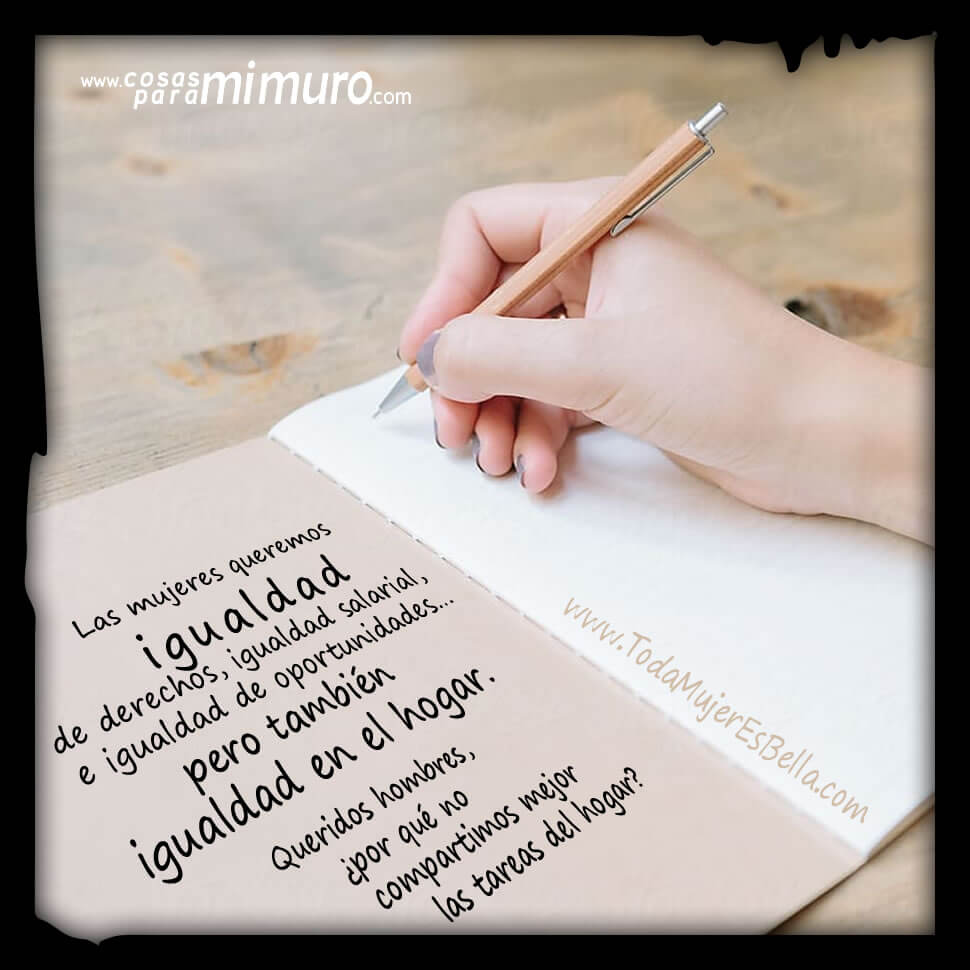 www.cosas
paramimuro.com
Las mujeres queremos
igualdad
de derechos, igualdad salarial,
e igualdad de oportunidades...
pero también
igualdad en el hogar.
Queridos hombres,
¿por qué no
compartimos mejor
las tareas del hogar?
www.TodaMujerEsBella.com